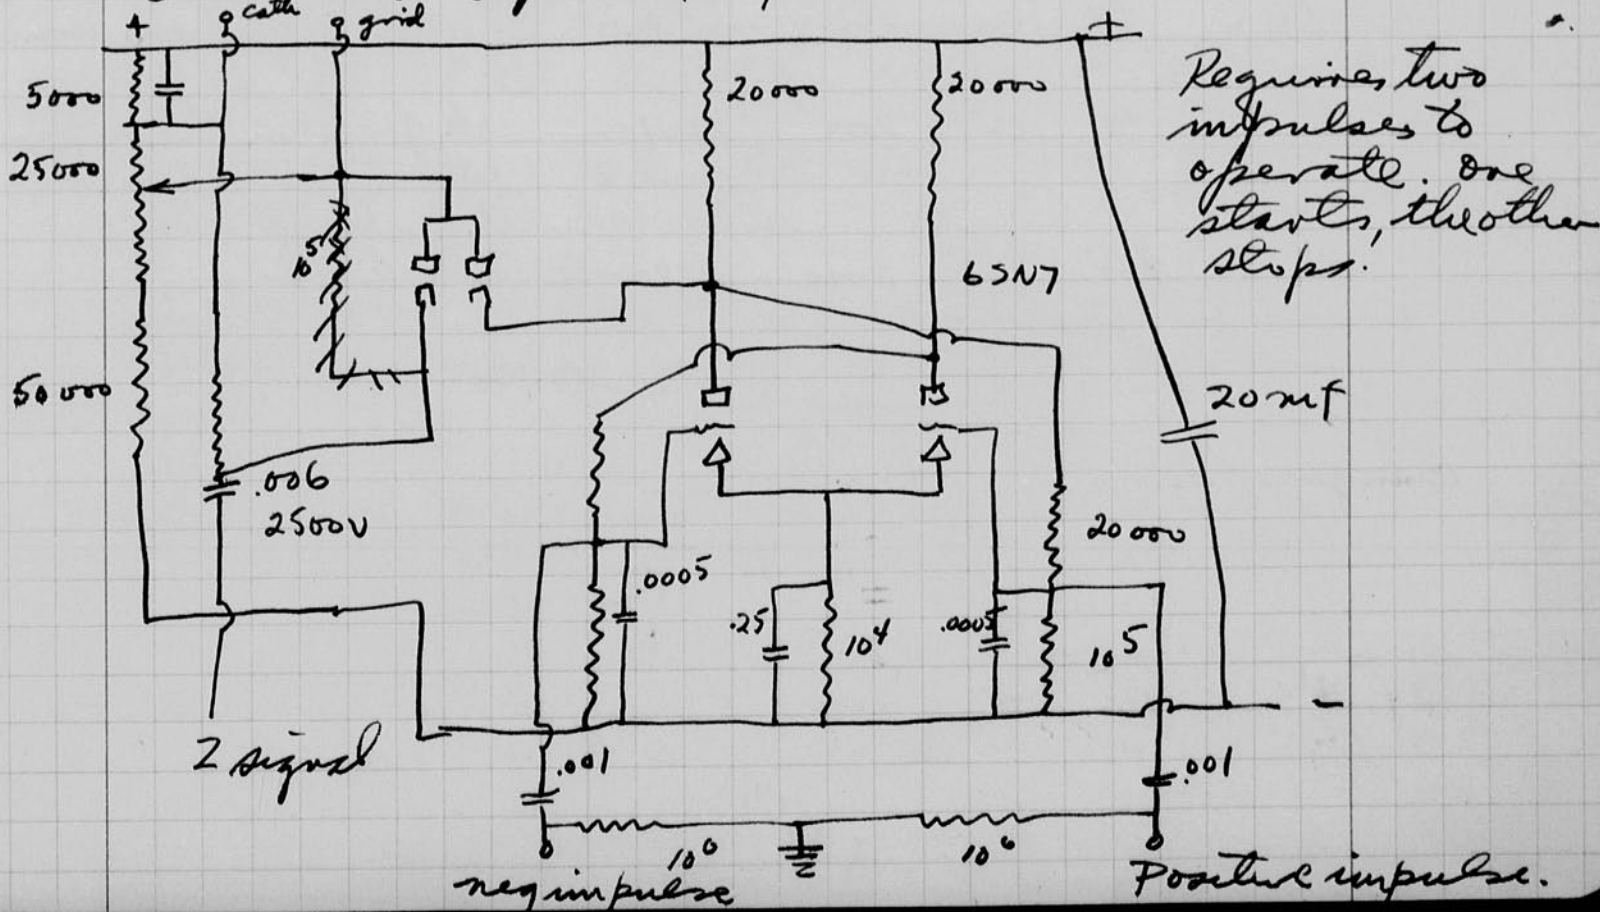 + cath grid +
5000
20000 20000
Requires two
impulses to
operate. One
starts, the other
stops.
25000
10⁵
6SN7
50000
20 mf
.006
2500V
20000
.0005
.25
10⁴
.0005
10⁵
-
Z signal
.001
.001
10⁶
10⁶
neg impulse
Positive impulse.